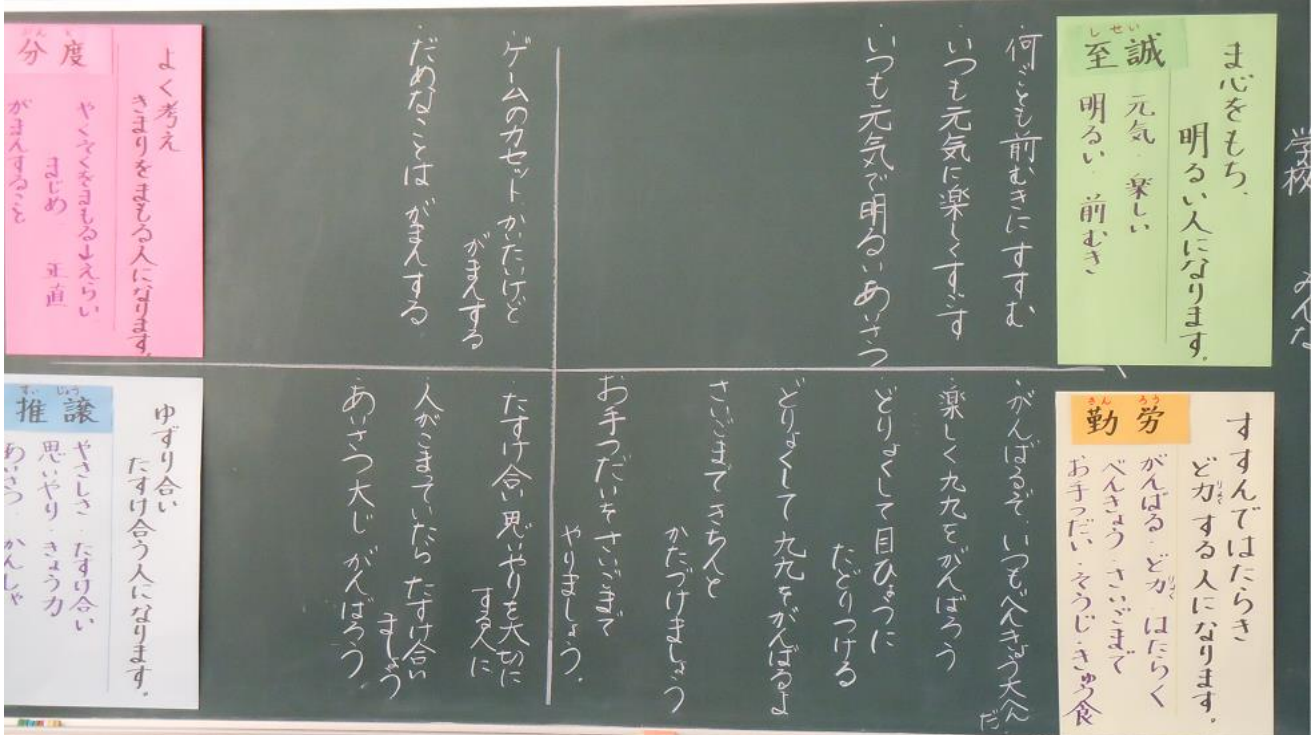 学校 みんな
ま心をもち、
明るい人になります。
しせい
至誠
元気 楽しい
明るい 前むき
・何ごとも前むきにすすむ
・いつも元気に楽しくすごす
・いつも元気で明るいあいさつ
・ゲームのカセット、かいたいけど
がまんする
・だめなことは がまんする
よく考え
きまりをまもる人になります。
分度
やくそくをまもる
まじめ 正直
がまんすること
すすんではたらき
ど力する人になります。
きんろう
勤労
がんばる・ど力・はたらく
べんきょう・さいごまで
お手つだい・そうじ・きゅう食
・がんばるぞ、いつもべんきょう大へんだ
・楽しく九九をがんばろう
・どりょくして目ひょうに
たどりつける
・どりょくして九九をがんばるよ
・さいごまできちんと
かたづけましょう
・お手つだいをさいごまで
やりましょう。
・たすけ合い思いやりを大切に
する人に
・人がこまっていたら たすけ合い
ましょう
・あいさつ大じ がんばろう
ゆずり合い
たすけ合う人になります。
すいじょう
推譲
やさしさ・たすけ合い
思いやり・きょう力
あいさつ かんしゃ